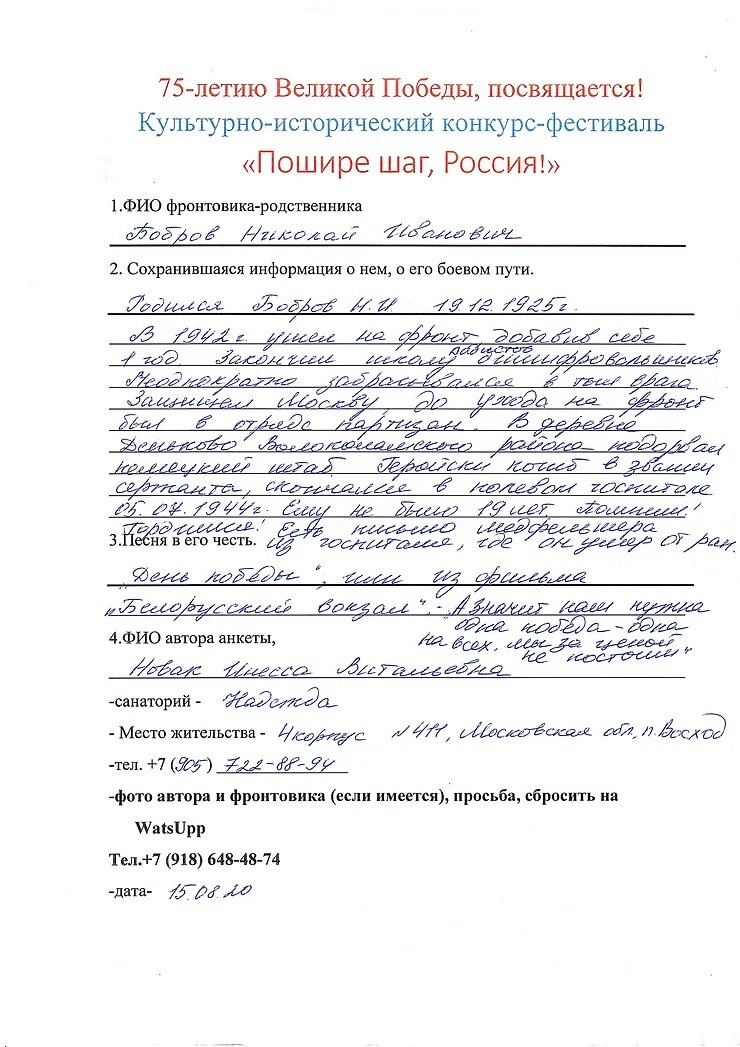 75-летию Великой Победы, посвящается!
Культурно-исторический конкурс-фестиваль
«Пошире шаг, Россия!»
1.ФИО фронтовика-родственника
Бобров Николай Иванович
2. Сохранившаяся информация о нем, о его боевом пути.
Родился Бобров Н.И 19.12.1925г.
В 1942г. ушел на фронт добавив себе
1 год Закончил школу радистов
шифровальщиков
Неоднократно забрасывался в тыл врага.
Защищал Москву, до ухода на фронт
был в отряде партизан. В деревне
Деньково Волоколамского района подорвал
немецкий штаб Геройски погиб в звании
сержанта, скончался в полевом госпитале
05.07.1944г. Ему не было 19 лет Помним!
Гордимся! Есть письмо медфельшера
из госпиталя, где он умер от ран.
3.Песня в его честь.
„День победы", или из фильма
„Белорусский вокзал". - „А значит нам нужна
одна победа - одна
на всех, мы за ценой
не постоим"
4.ФИО автора анкеты,
Новак Инесса Витальевна
-санаторий - Надежда
- Место жительства - 4 корпус №411, Московская обл, п. Восход
-тел. +7 (905) 722-88-94
-фото автора и фронтовика (если имеется), просьба, сбросить на
WatsUpp
Тел.+7 (918) 648-48-74
-дата- 15.08.20